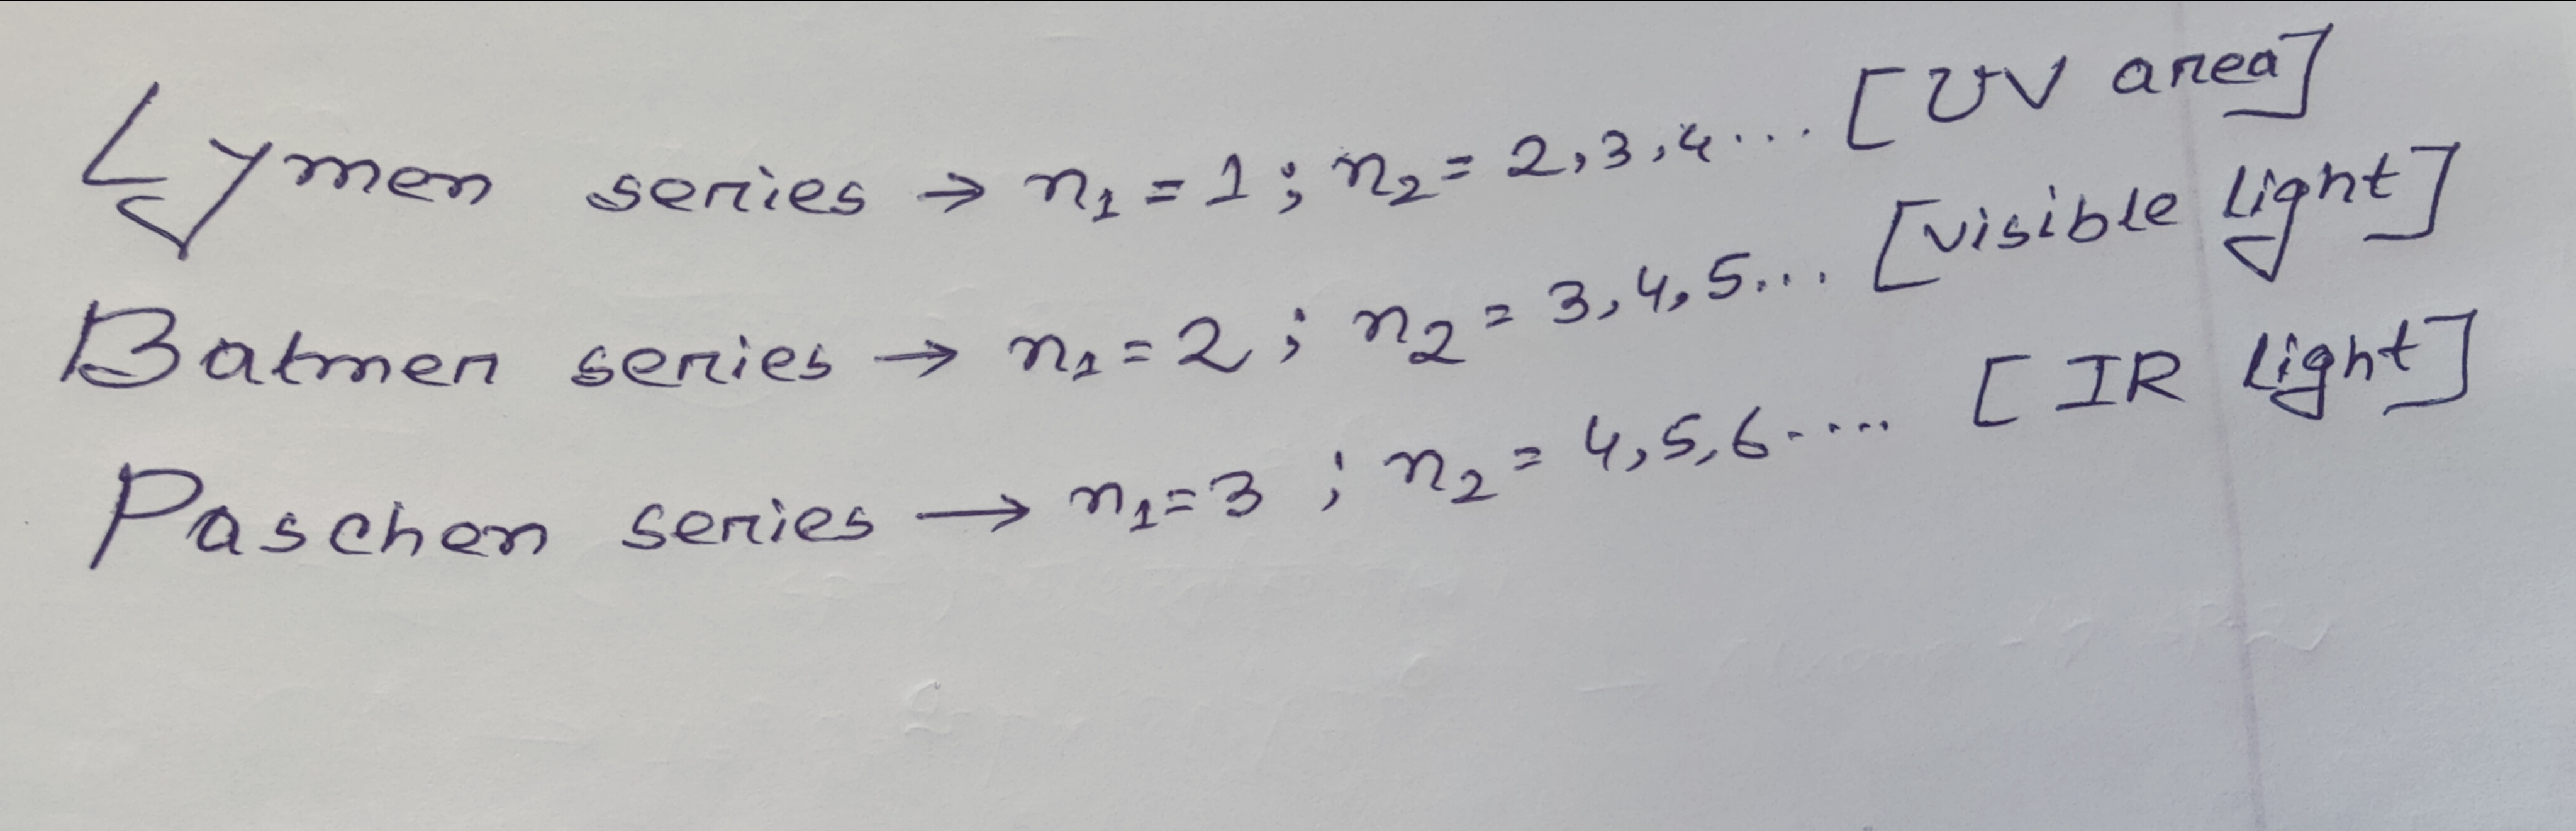 Lymen series → n₁ = 1 ; n₂ = 2,3,4... [UV area]
Balmer series → n₁ = 2 ; n₂ = 3,4,5... [visible light]
Paschen series → n₁ = 3 ; n₂ = 4,5,6..... [IR light]